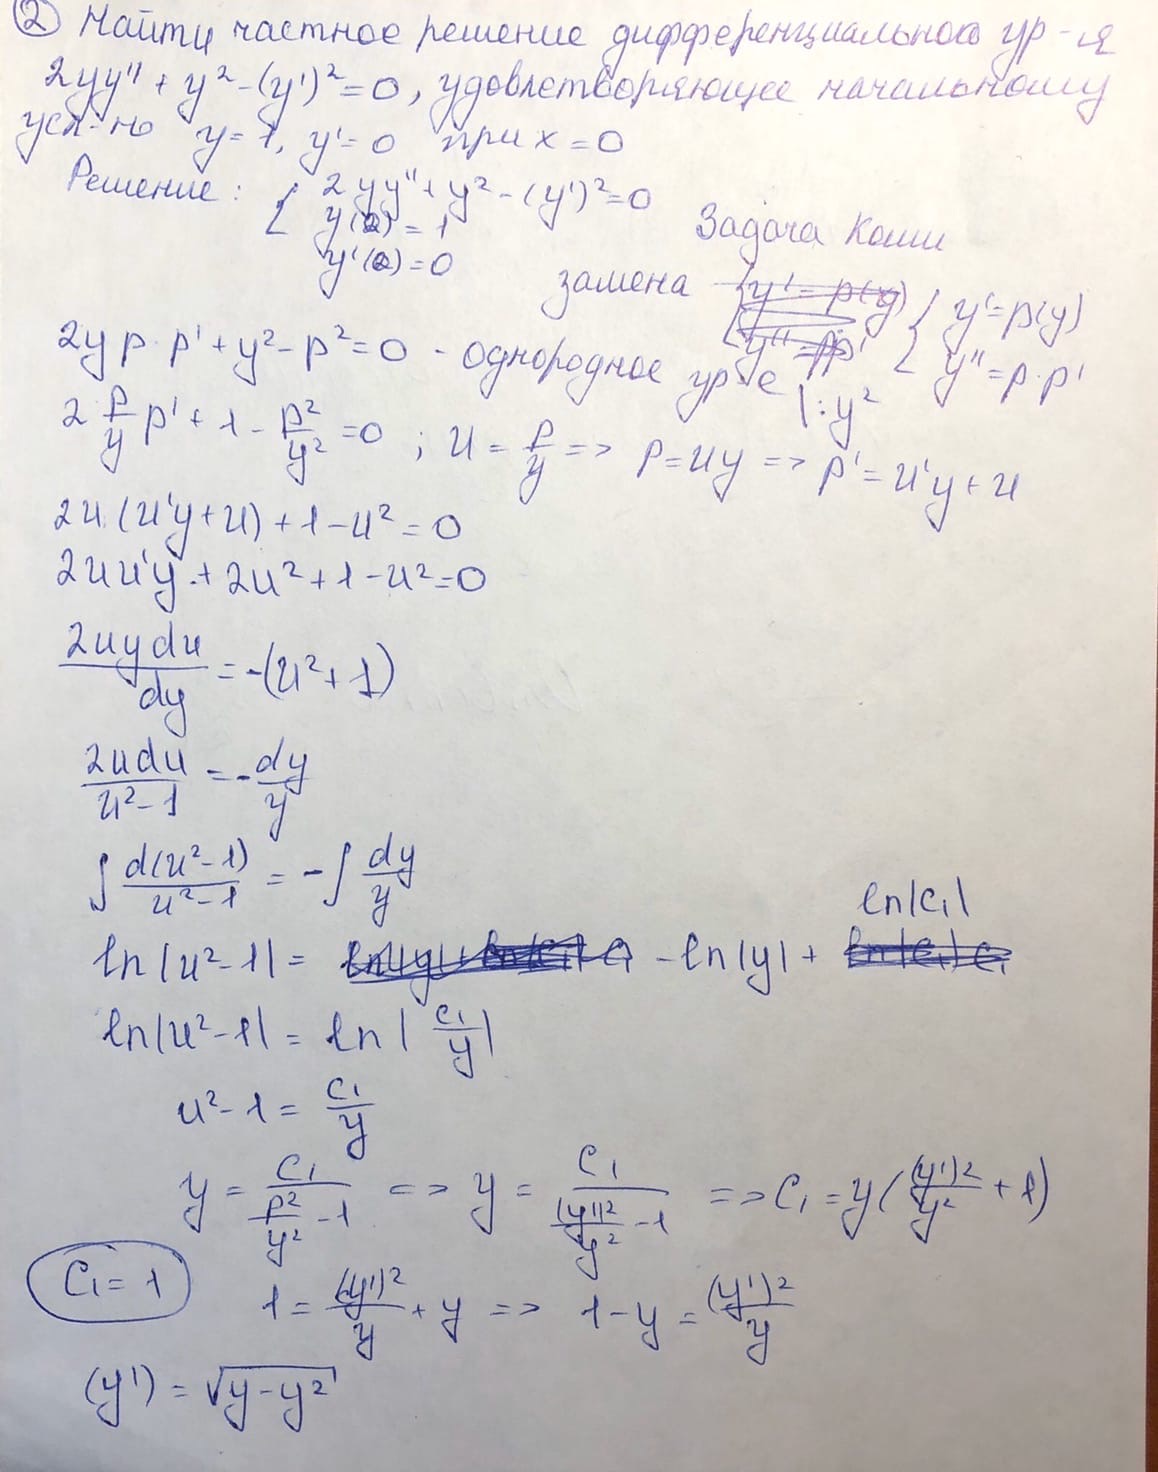 ② Найти частное решение дифференциального ур-я
2yy'' + y² - (y')² = 0, удовлетворяющее начальному
усл-ю y = 1, y' = 0 при x = 0
Решение: { 2yy'' + y² - (y')² = 0
y(0) = 1
y'(0) = 0
Задача Коши
замена { y' = p(y)
y'' = p·p'
2yp·p' + y² - p² = 0 - однородное ур-е |:y²
2 p/y p' + 1 - p²/y² = 0 ; u = p/y => p = uy => p' = u'y + u
2u(u'y + u) + 1 - u² = 0
2uu'y + 2u² + 1 - u² = 0
2uydu/dy = -(u² + 1)
2udu/(u² - 1) = -dy/y
∫ d(u² - 1)/(u² - 1) = -∫ dy/y
ln|u² - 1| = -ln|y| + ln|C₁|
ln|u² - 1| = ln|C₁/y|
u² - 1 = C₁/y
y = C₁/(p²/y² - 1) => y = C₁/((y')²/y² - 1) => C₁ = y((y')²/y² + 1)
C₁ = 1
1 = (y')²/y + y => 1 - y = (y')²/y
(y') = √(y - y²)